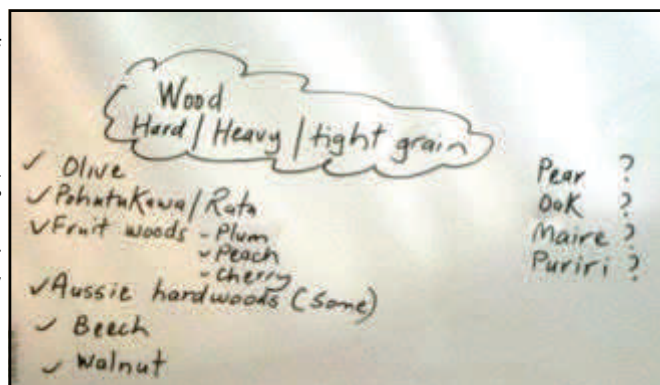 Wood
Hard / Heavy / tight grain
✓ Olive
✓ Pohutukawa / Rata
✓ Fruit woods - Plum
✓ Peach
- Cherry
✓ Aussie hardwoods (Some)
✓ Beech
✓ Walnut
Pear ?
Oak ?
Maire ?
Puriri ?